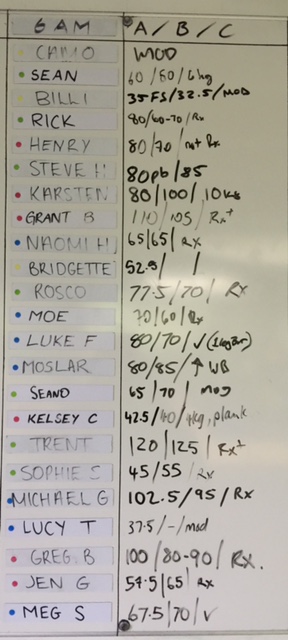 6 AM A / B / C
CAMO MOD
SEAN 60 / 60 / 6kg
BILLI 35FS / 32.5 / MOD
RICK 80/60-70 / Rx
HENRY 80 / 70 / not Rx
STEVE H 80pb / 85
KARSTEN 80 / 100 / 10kg
GRANT B 110 / 105 / Rx+
NAOMI H 65 / 65 / Rx
BRIDGETTE 52.5 / /
ROSCO 77.5 / 70 / Rx
MOE 70 / 60 / Rx
LUKE F 80 / 70 / ✓
MOSLAR 80 / 85 / ↑ WB
SEAND 65 / 70 / mod
KELSEY C 42.5 / 40 / 4kg, plank
TRENT 120 / 125 / Rx+
SOPHIE S 45 / 55 / Rx
MICHAEL G 102.5 / 95 / Rx
LUCY T 37.5 / - / mod
GREG B 100 / 80-90 / Rx.
JEN G 57.5 / 65 / Rx
MEG S 67.5 / 70 / ✓